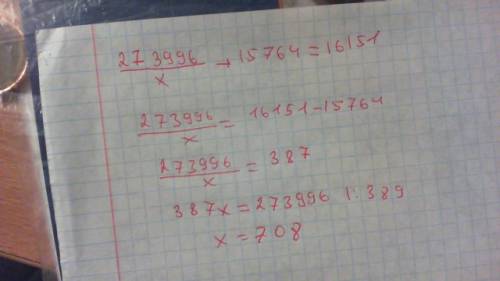 273996/x + 15764 = 16151
273996/x = 16151 - 15764
273996/x = 387
387x = 273996 |: 389
x = 708